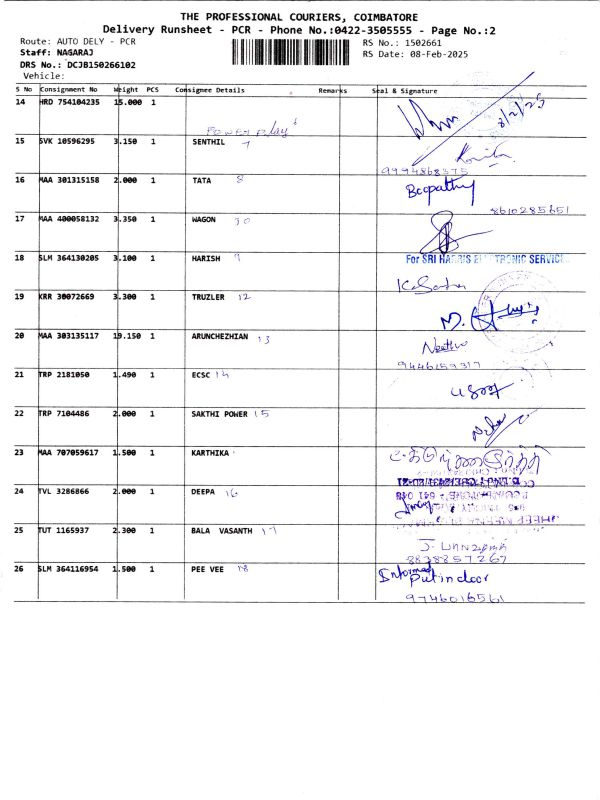 THE PROFESSIONAL COURIERS, COIMBATORE
Delivery Runsheet - PCR - Phone No.:0422-3505555 - Page No.:2
Route: AUTO DELY - PCR
RS No.: 1502661
Staff: NAGARAJ
RS Date: 08-Feb-2025
DRS No.: DCJB150266102
Vehicle:
S No Consignment No Weight PCS Consignee Details Remarks Seal & Signature
14 HRD 754104235 15.000 1
8/2/25
Power play
15 SVK 10596295 3.150 1 SENTHIL 7
9994868375
16 MAA 301315158 2.000 1 TATA 8 Boopathy
8610285651
17 MAA 400058132 3.350 1 WAGON 30
18 SLM 364130205 3.100 1 HARISH 9 For SRI HARRIS ELECTRONIC SERVICE
19 KRR 30072669 3.300 1 TRUZLER 12
20 MAA 303135117 19.150 1 ARUNCHEZHIAN 13
9446159317
21 TRP 2181050 1.490 1 ECSC 14
22 TRP 7104486 2.000 1 SAKTHI POWER 15
23 MAA 707059617 1.500 1 KARTHIKA
24 TVL 3286866 2.000 1 DEEPA 16
25 TUT 1165937 2.300 1 BALA VASANTH 17
8838857267
26 SLM 364116954 1.500 1 PEE VEE 18 Informed
Put in door
9746016561